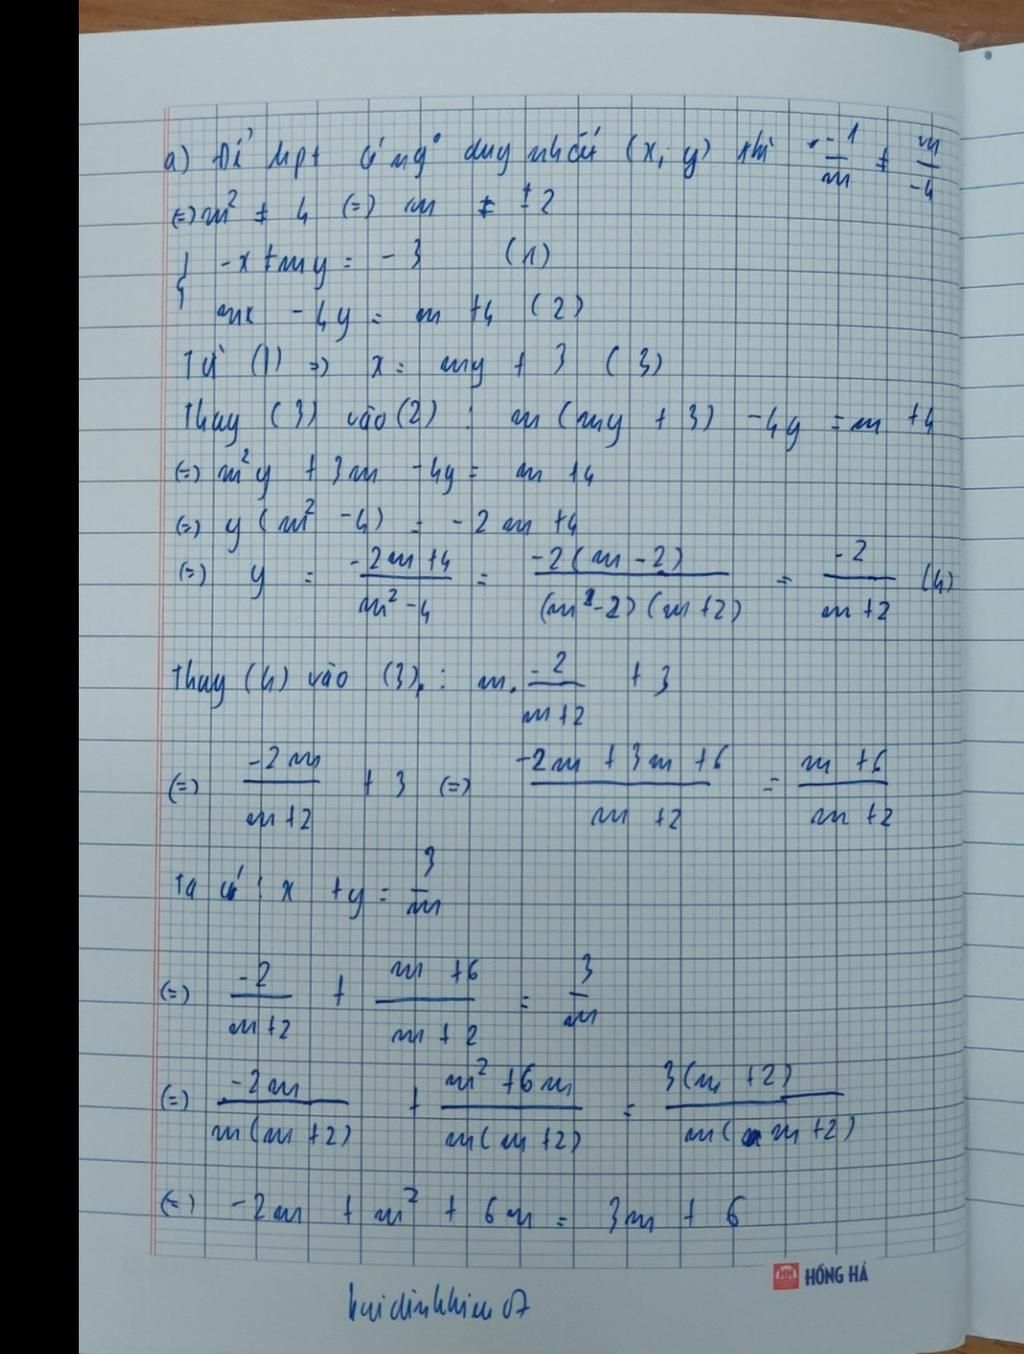 a) Để hpt có ngo duy nhất (x, y) thì -1/m ≠ m/-4
(=) m² ≠ 4 (=) m ≠ ±2
{ -x + my = -3 (1)
mx - 4y = m + 4 (2)
Từ (1) => x = my + 3 (3)
Thay (3) vào (2) : m (my + 3) - 4y = m + 4
(=) m²y + 3m - 4y = m + 4
(=) y (m² - 4) = -2m + 4
(=) y = -2m + 4 / m² - 4 = -2 (m - 2) / (m - 2) (m + 2) = -2 / m + 2 (4)
Thay (4) vào (3) : m. -2 / m + 2 + 3
(=) -2m / m + 2 + 3 (=) -2m + 3m + 6 / m + 2 = m + 6 / m + 2
Ta có : x + y = 3 / m
(=) -2 / m + 2 + m + 6 / m + 2 = 3 / m
(=) -2m / m (m + 2) + m² + 6m / m (m + 2) = 3 (m + 2) / m (m + 2)
(=) -2m + m² + 6m = 3m + 6
HỒNG HÀ